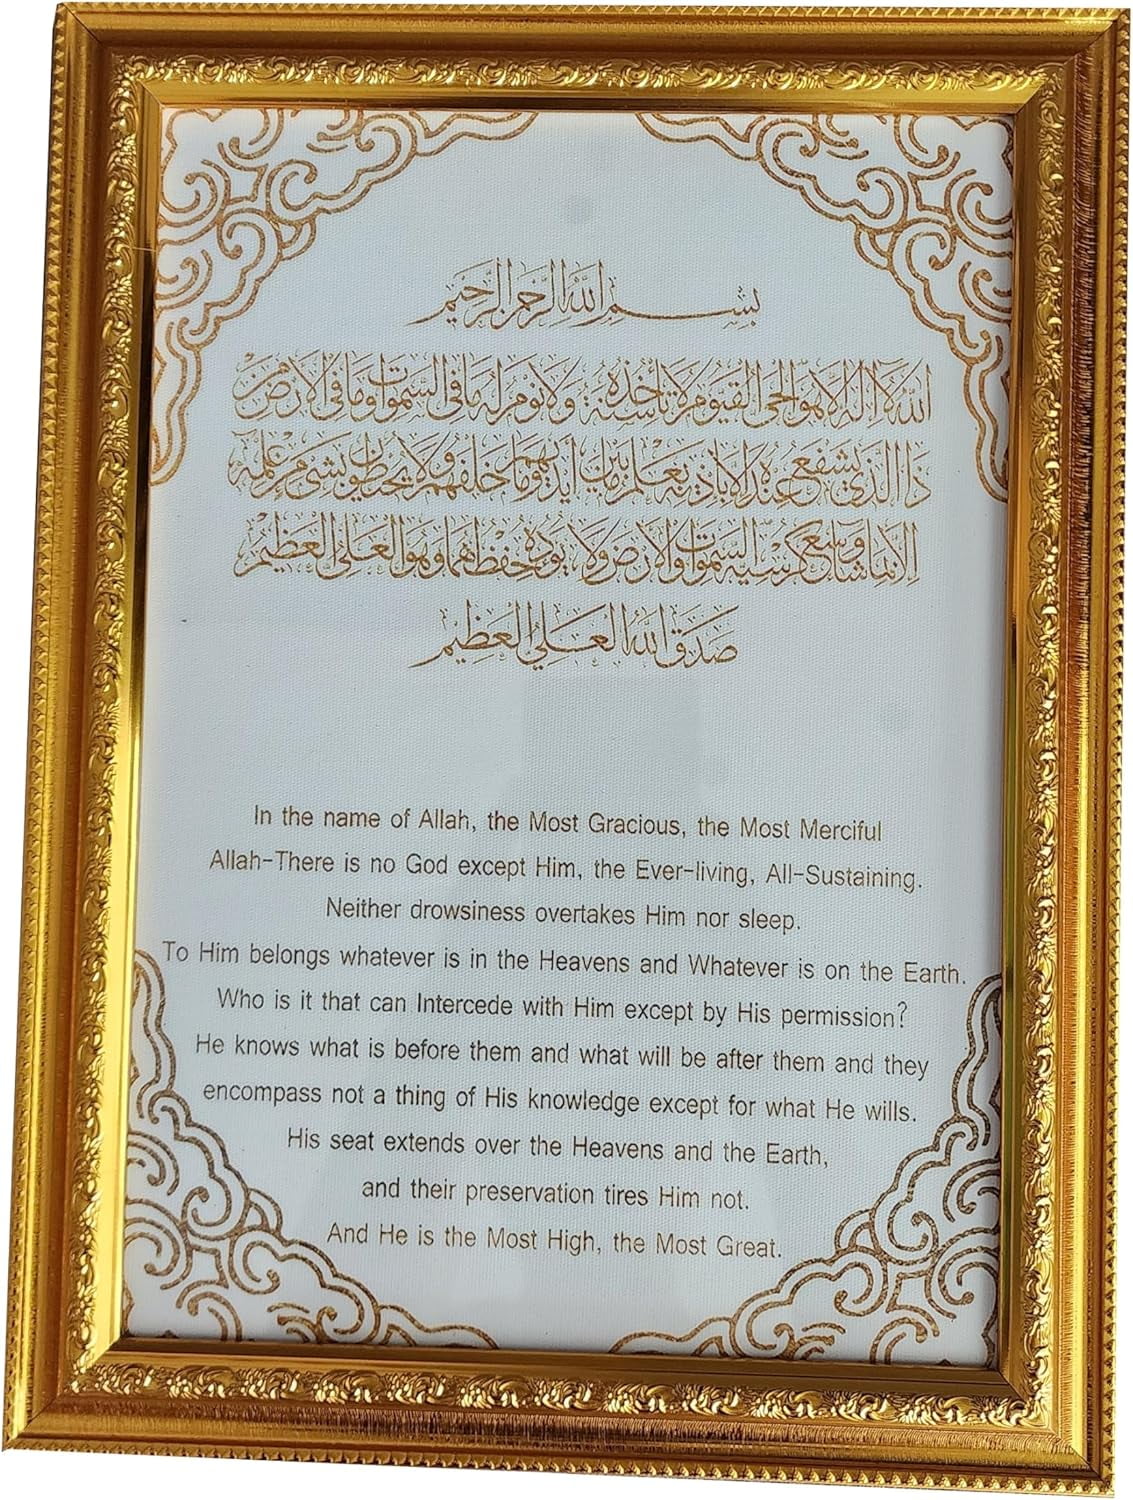 بسم الله الرحمن الرحيم
الله لا اله الا هو الحي القيوم لا تأخذه سنة ولا نوم له ما في السموات وما في الارض من
ذا الذي يشفع عنده الا باذنه يعلم ما بين أيديهم وما خلفهم ولا يحيطون بشيء من علمه
الا بما شاء وسع كرسيه السموات والارض ولا يوده حفظهما وهو العلي العظيم
صدق الله العلي العظيم
In the name of Allah, the Most Gracious, the Most Merciful
Allah-There is no God except Him, the Ever-living, All-Sustaining.
Neither drowsiness overtakes Him nor sleep.
To Him belongs whatever is in the Heavens and Whatever is on the Earth.
Who is it that can Intercede with Him except by His permission?
He knows what is before them and what will be after them and they
encompass not a thing of His knowledge except for what He wills.
His seat extends over the Heavens and the Earth,
and their preservation tires Him not.
And He is the Most High, the Most Great.